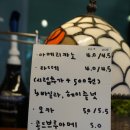 ·아메리카노 4.0/4.5
·라떼 4.0/4.5
(시럽추가 500원)
·바닐라, 헤이즐넛
·모카 5.0/5.5
·콜드브루아메리 5.0